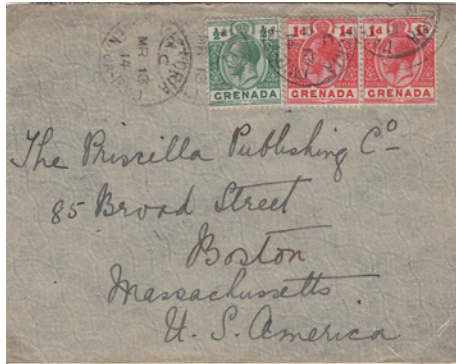 ½d ½d
GRENADA
1d 1d
GRENADA
1d 1d
GRENADA
MR 12
14
The Priscilla Publishing Co
85 Broad Street
Boston
Massachussetts
U. S. America